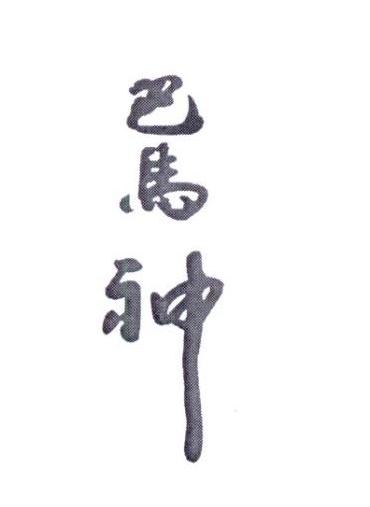 巴馬神